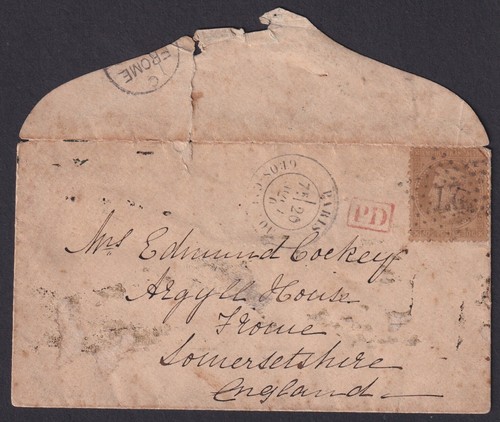 FROME
PARIS
GROS
7E 20
PD
Mrs Edmund Cockey
Argyll House
Frome
Somersetshire
England